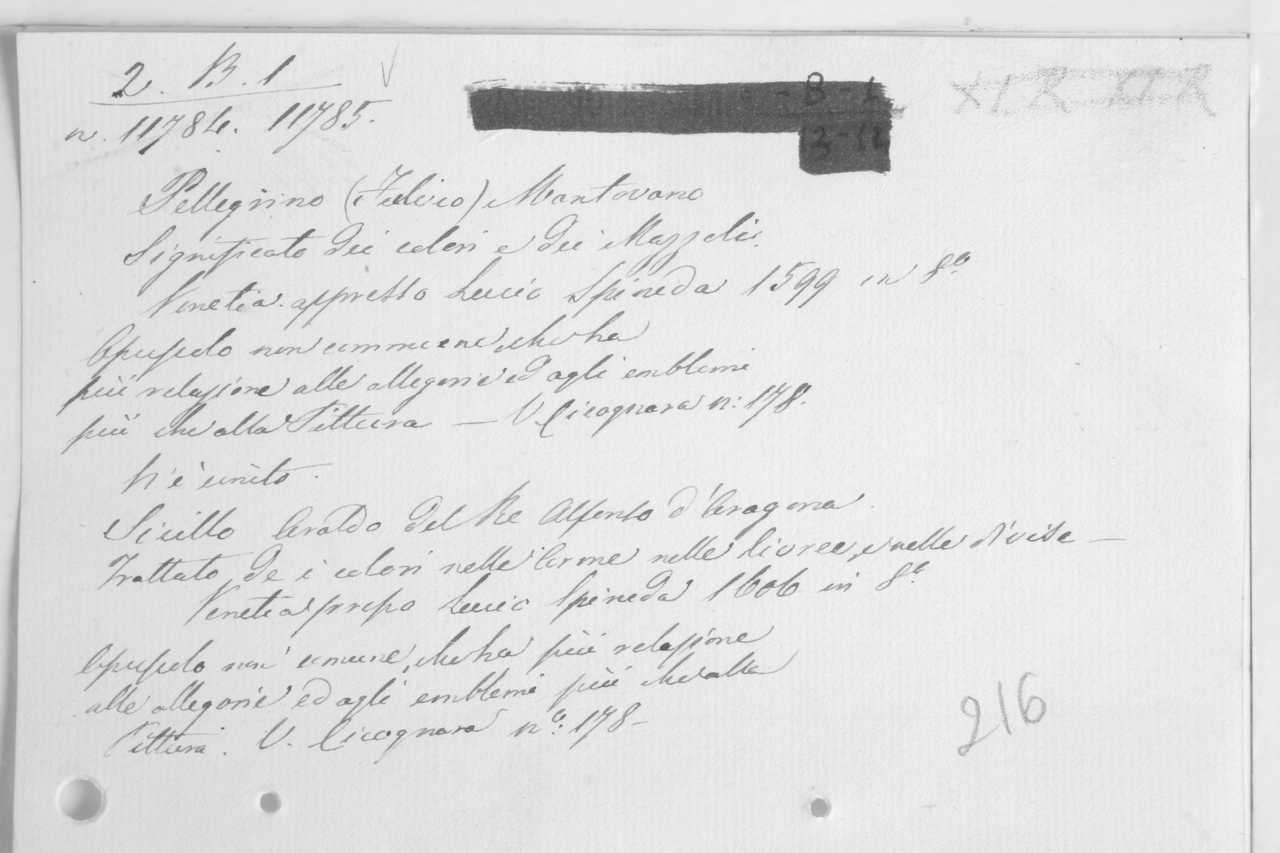 2. B. 1
n. 11784. 11785.
- B - L
XI R XI R
Pellegrino (Fulvio) Mantovano
Significato dei colori e dei Mazzoli.
Venetia appresso Lucio Spineda 1599 in 8º
Opuscolo non commune, che ha
più relazione alle allegorie ed agli emblemi
più che alla Pittura — V Cicognara n: 178.
N'è unito.
Sicillo Araldo del Re Alfonso d'Aragona.
Trattato de i colori nelle Arme nelle livree, e nelle divise —
Venetia presso Lucio Spineda 1606 in 8º
Opuscolo non comune, che ha più relazione
alle allegorie ed agli emblemi più che alla
Pittura. V. Cicognara nº: 178 -
216